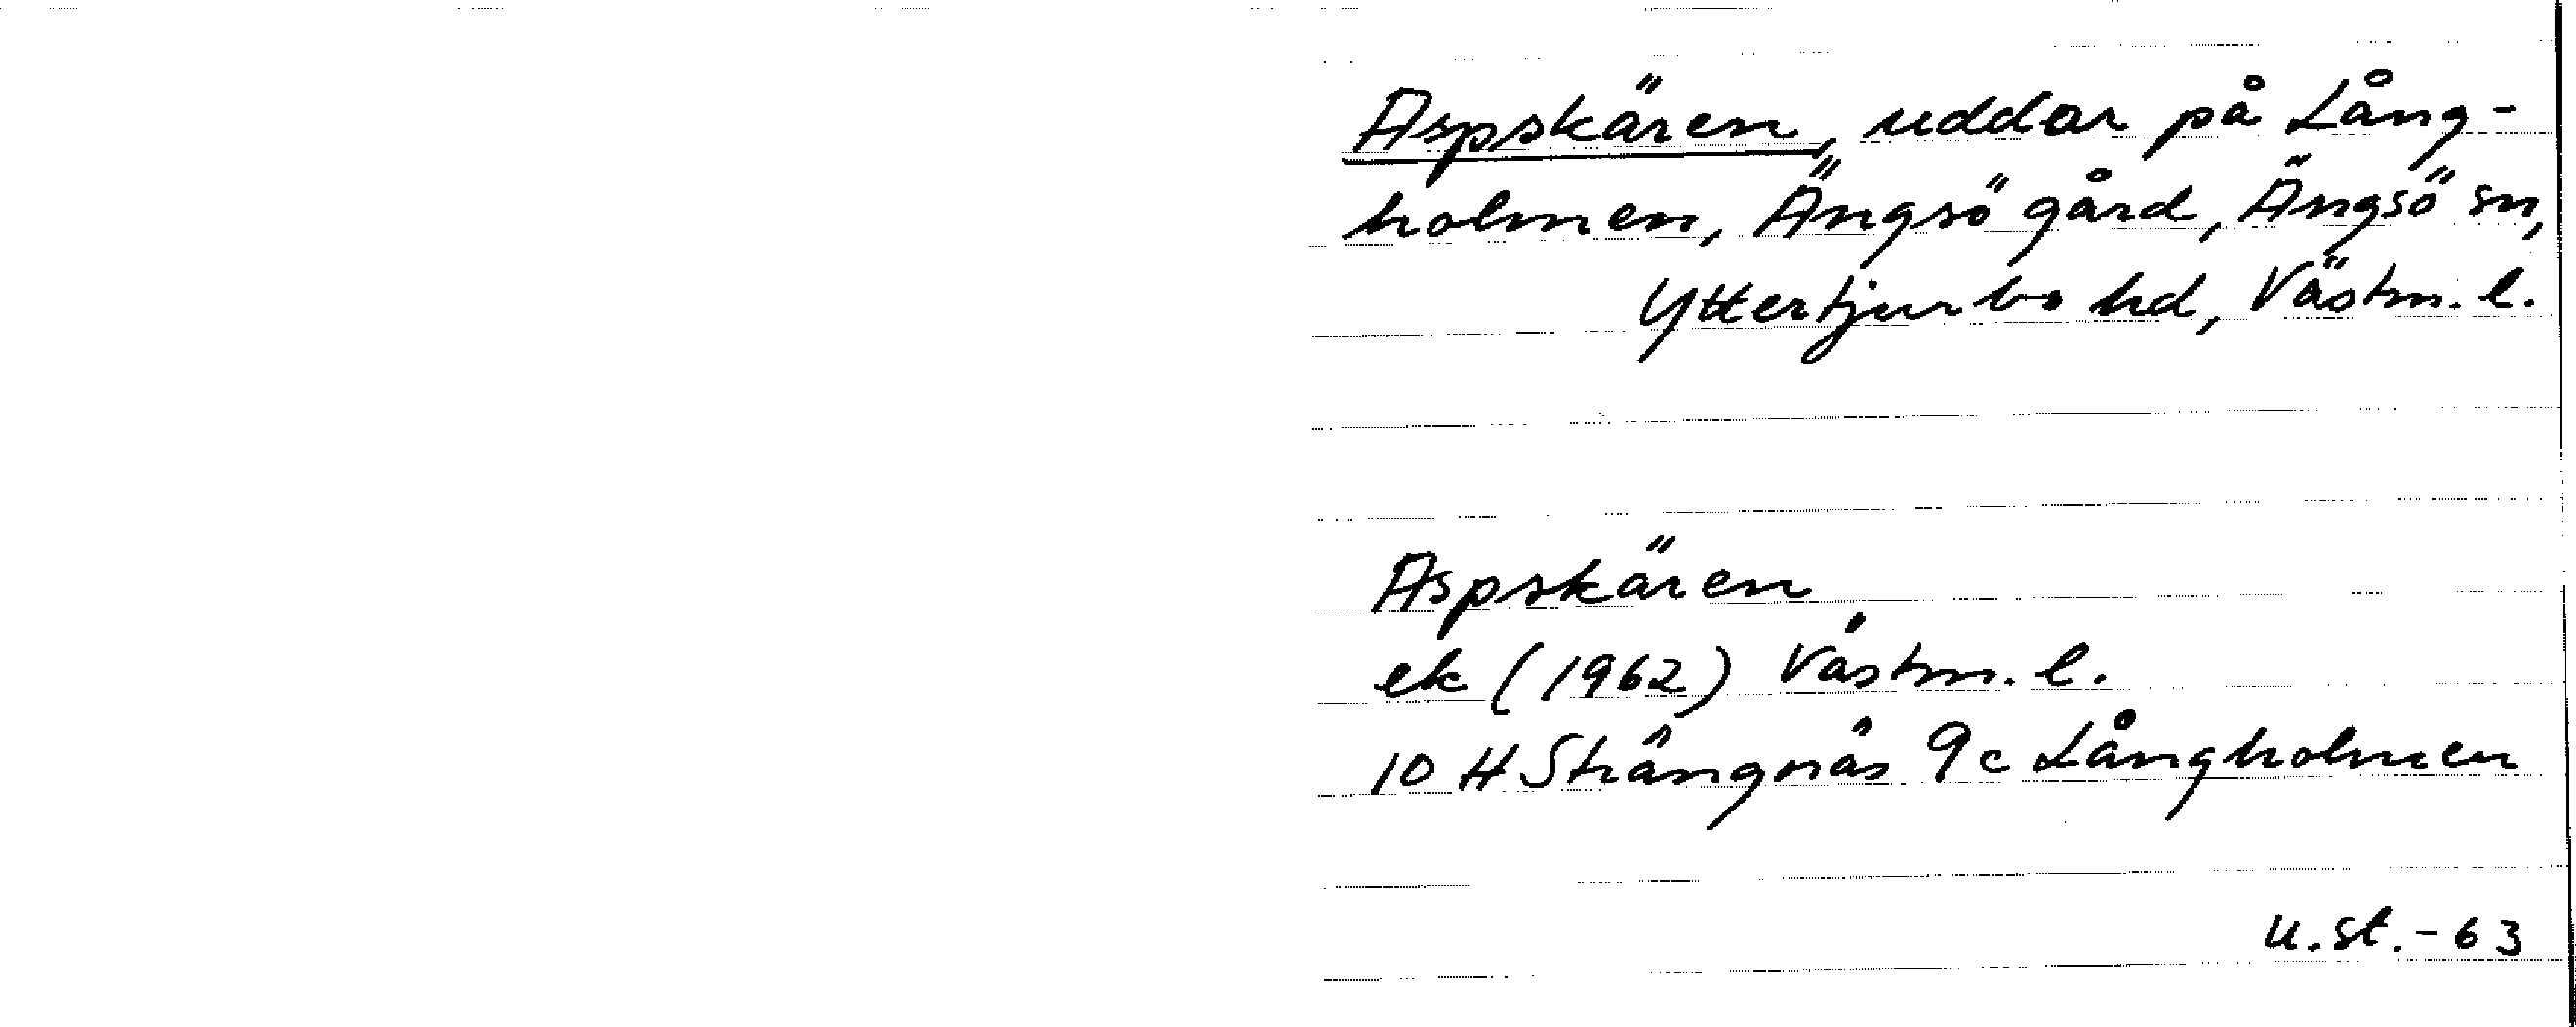 Aspskären, uddar på Lång-
holmen, Ängsö gård, Ängsö sn,
Yttertjurbo hd, Västm. l.
Aspskären
ek (1962) Västm. l.
10 H Strängnäs 9c Långholmen
u.st.-63